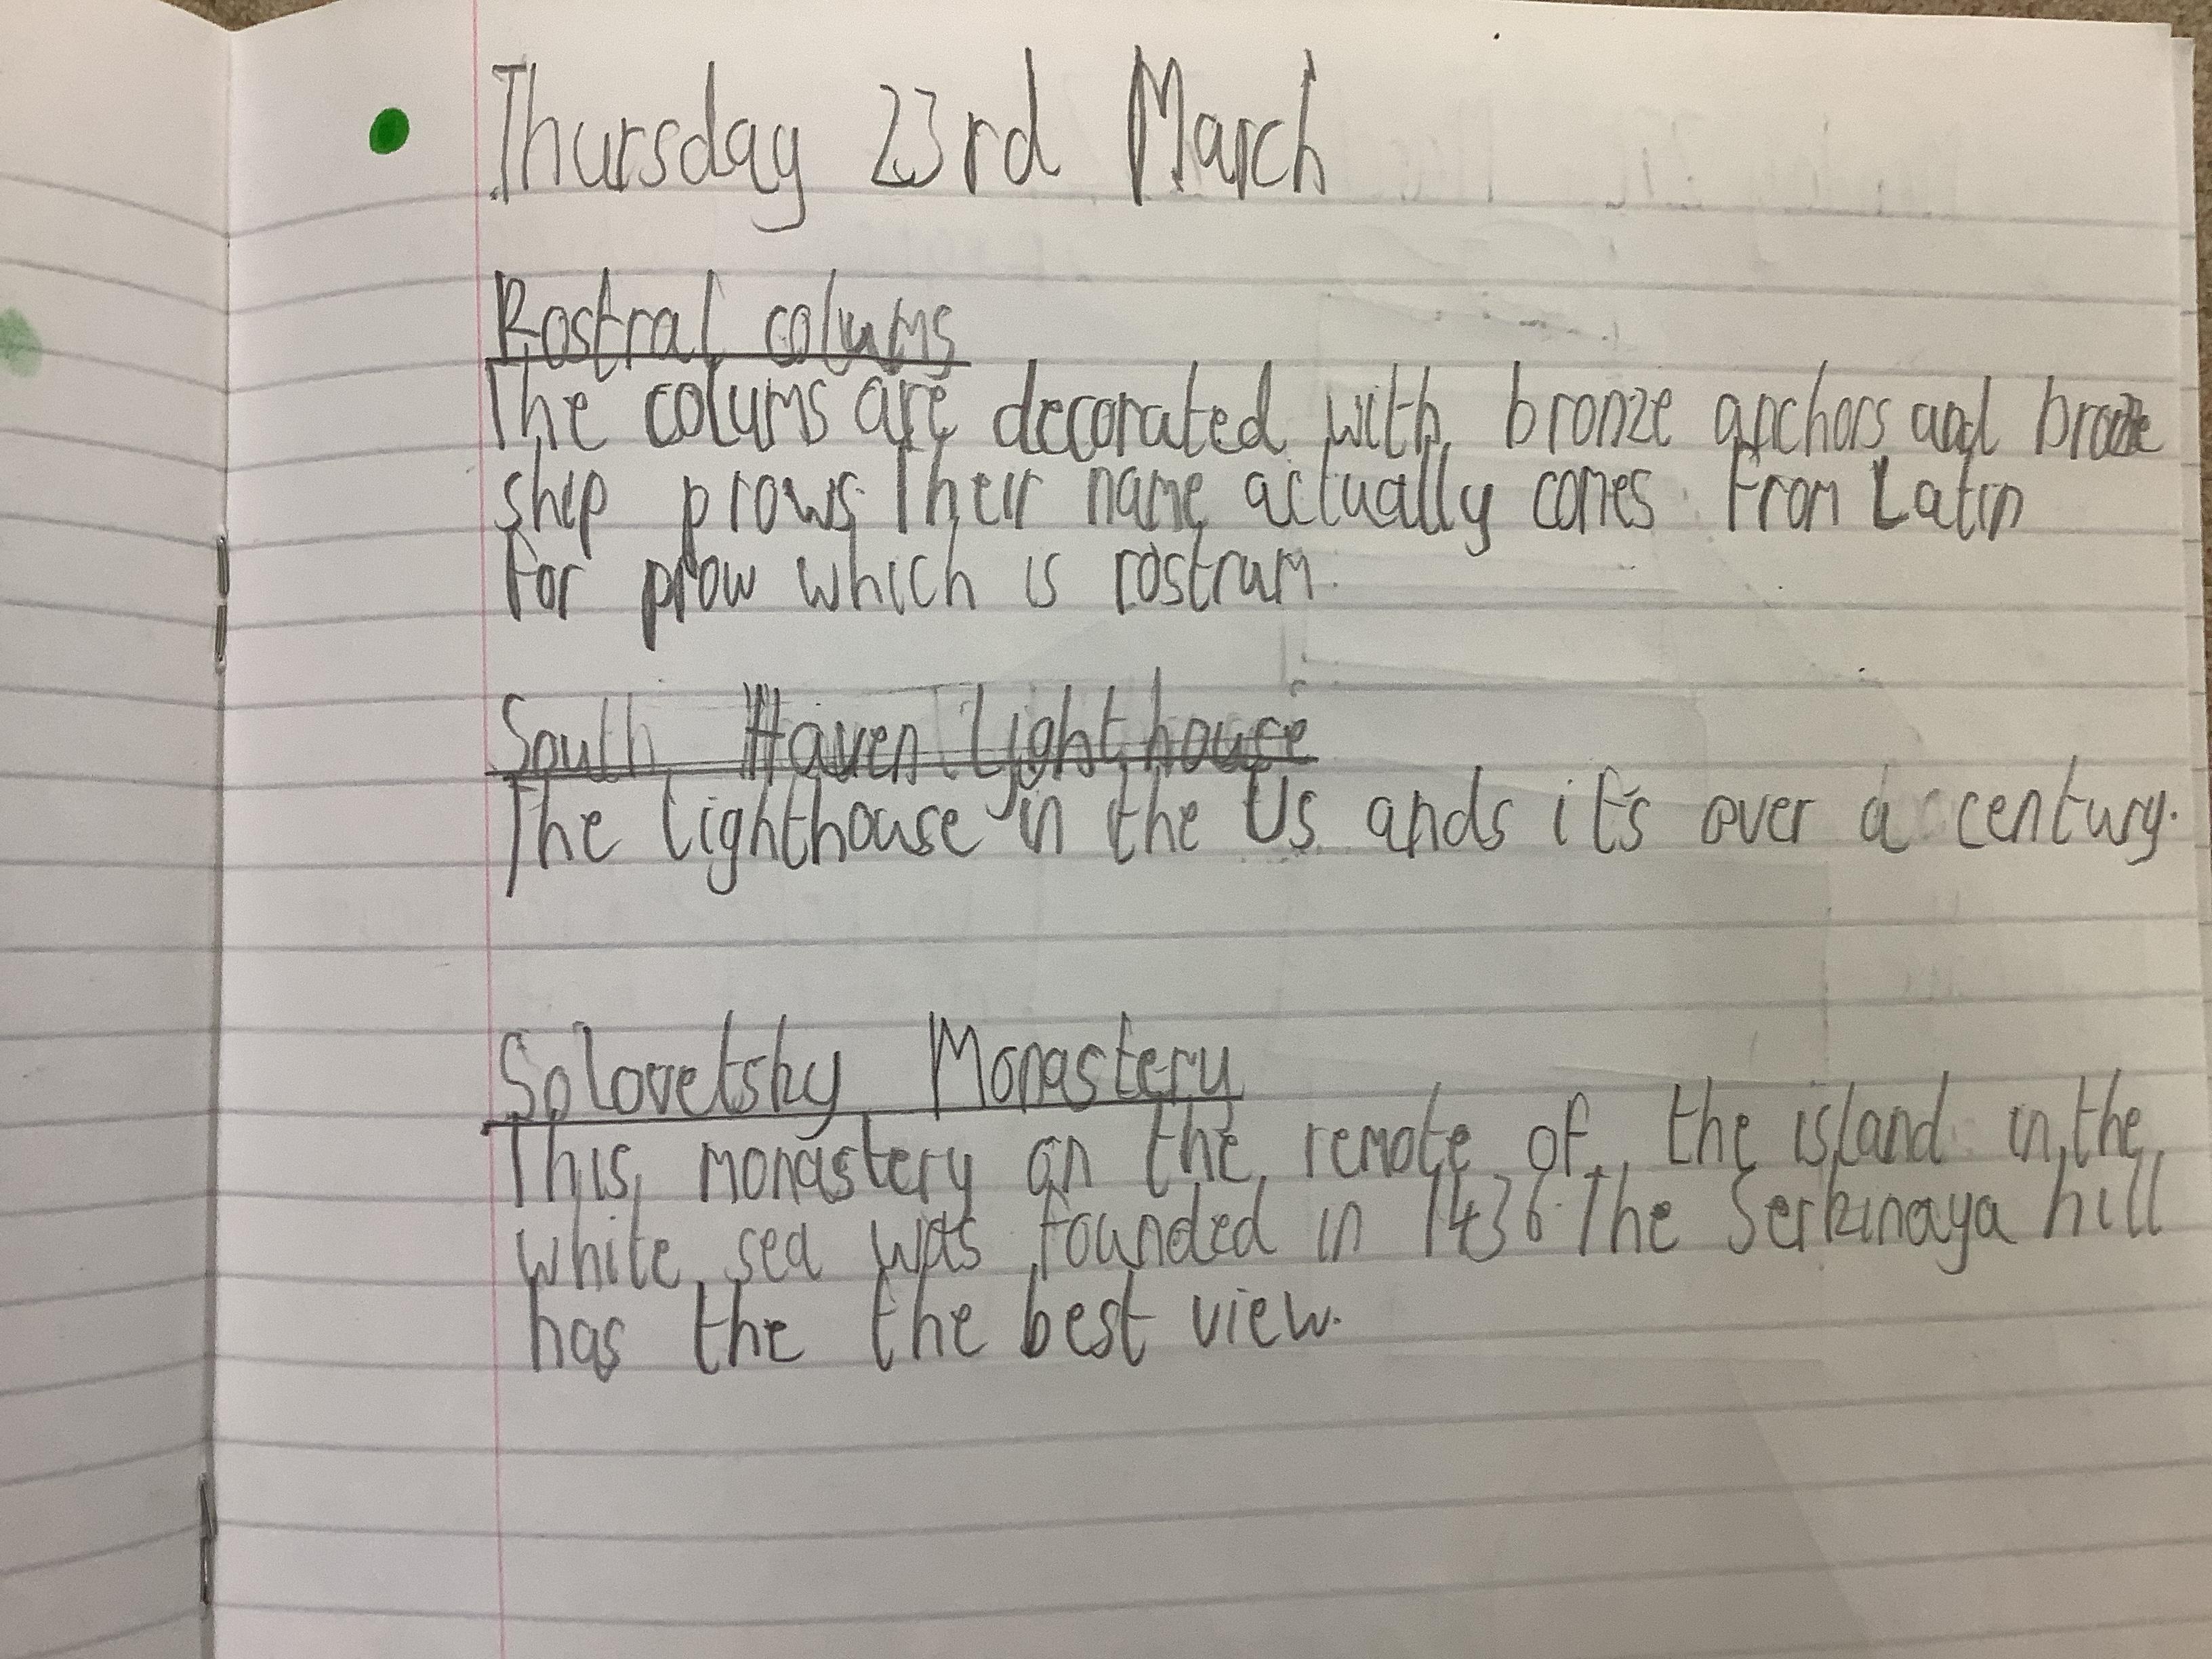 Thursday 23rd March
Rostral colums
The colums are decorated with bronze anchors and bronze
ship prows. Their name actually comes from Latin
for prow which is rostrum.
South Haven Lighthouse
The lighthouse in the Us ands it's over a century.
Solovetsky Monastery
This monastery on the remote of the island in the
white sea was founded in 1436. The Serkinaya hill
has the the best view.